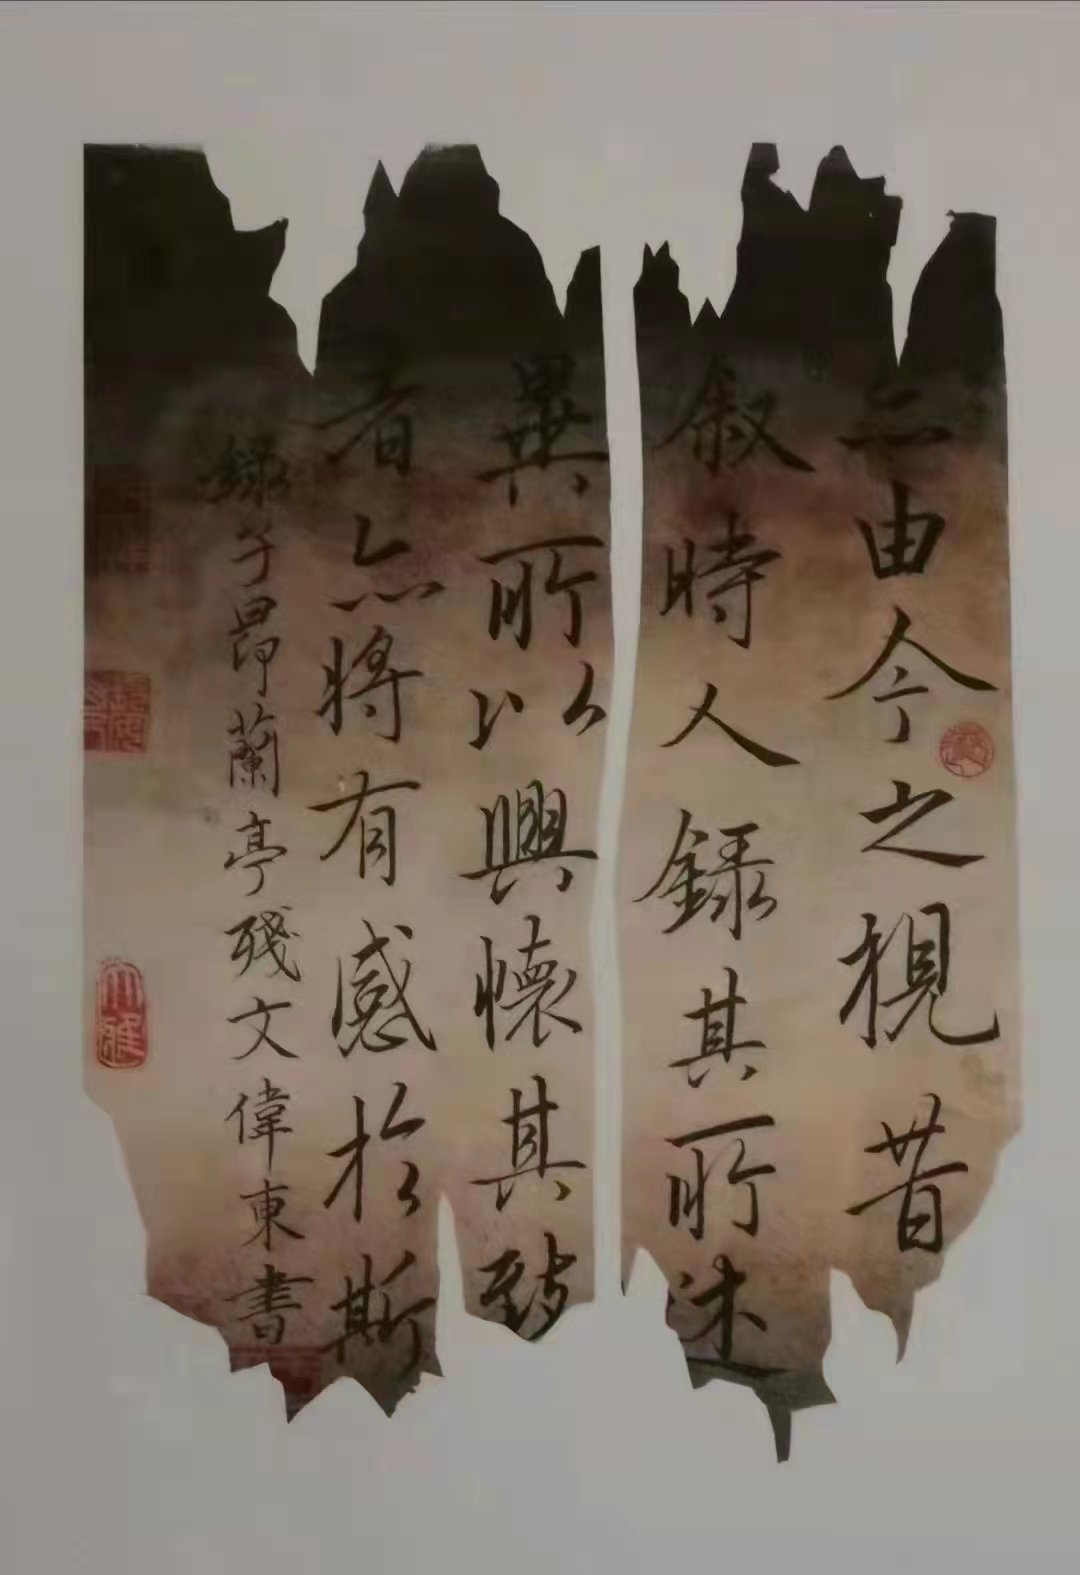 亦由今之視昔
叙時人録其所述
異所以興懷其致
者亦將有感於斯
録子昂蘭亭殘文偉東書